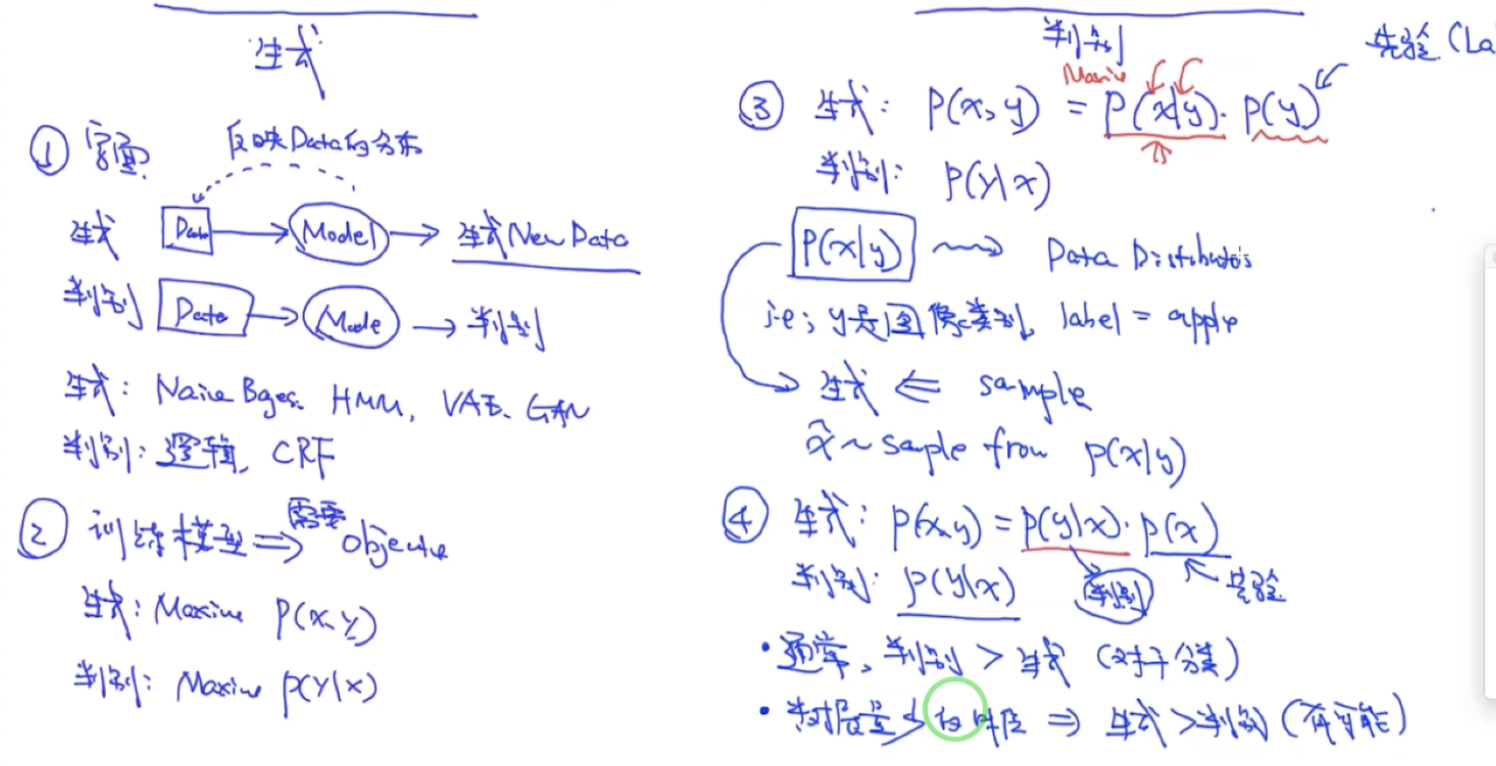 生成
① 
反映Data的分布
生成 Data → Model → 生成New Data
判别 Data → Mode → 判别
生成: Naive Bayes. HMM, VAE、GAN
判别: 逻辑, CRF
② 训练模型 ⇒ 需要 Objective
生成: Maxime P(x, y)
判别: Maxime P(Y|X)
判别
先验 (La
Maxime
③ 生成: P(x, y) = P(x|y)· P(y)
判别: P(y|x)
P(x|y) → Data Distribution
i.e; y是图像类别, label = apple
生成 ⇐ sample
x̂ ~ saple from p(x|y)
④ 生成: p(x,y) = p(y|x)· p(x)
判别: p(y|x) 判别 先验
• 通常、判别 > 生成 (对于分类)
• 少的时候 ⇒ 生成 > 判别 (有可能)